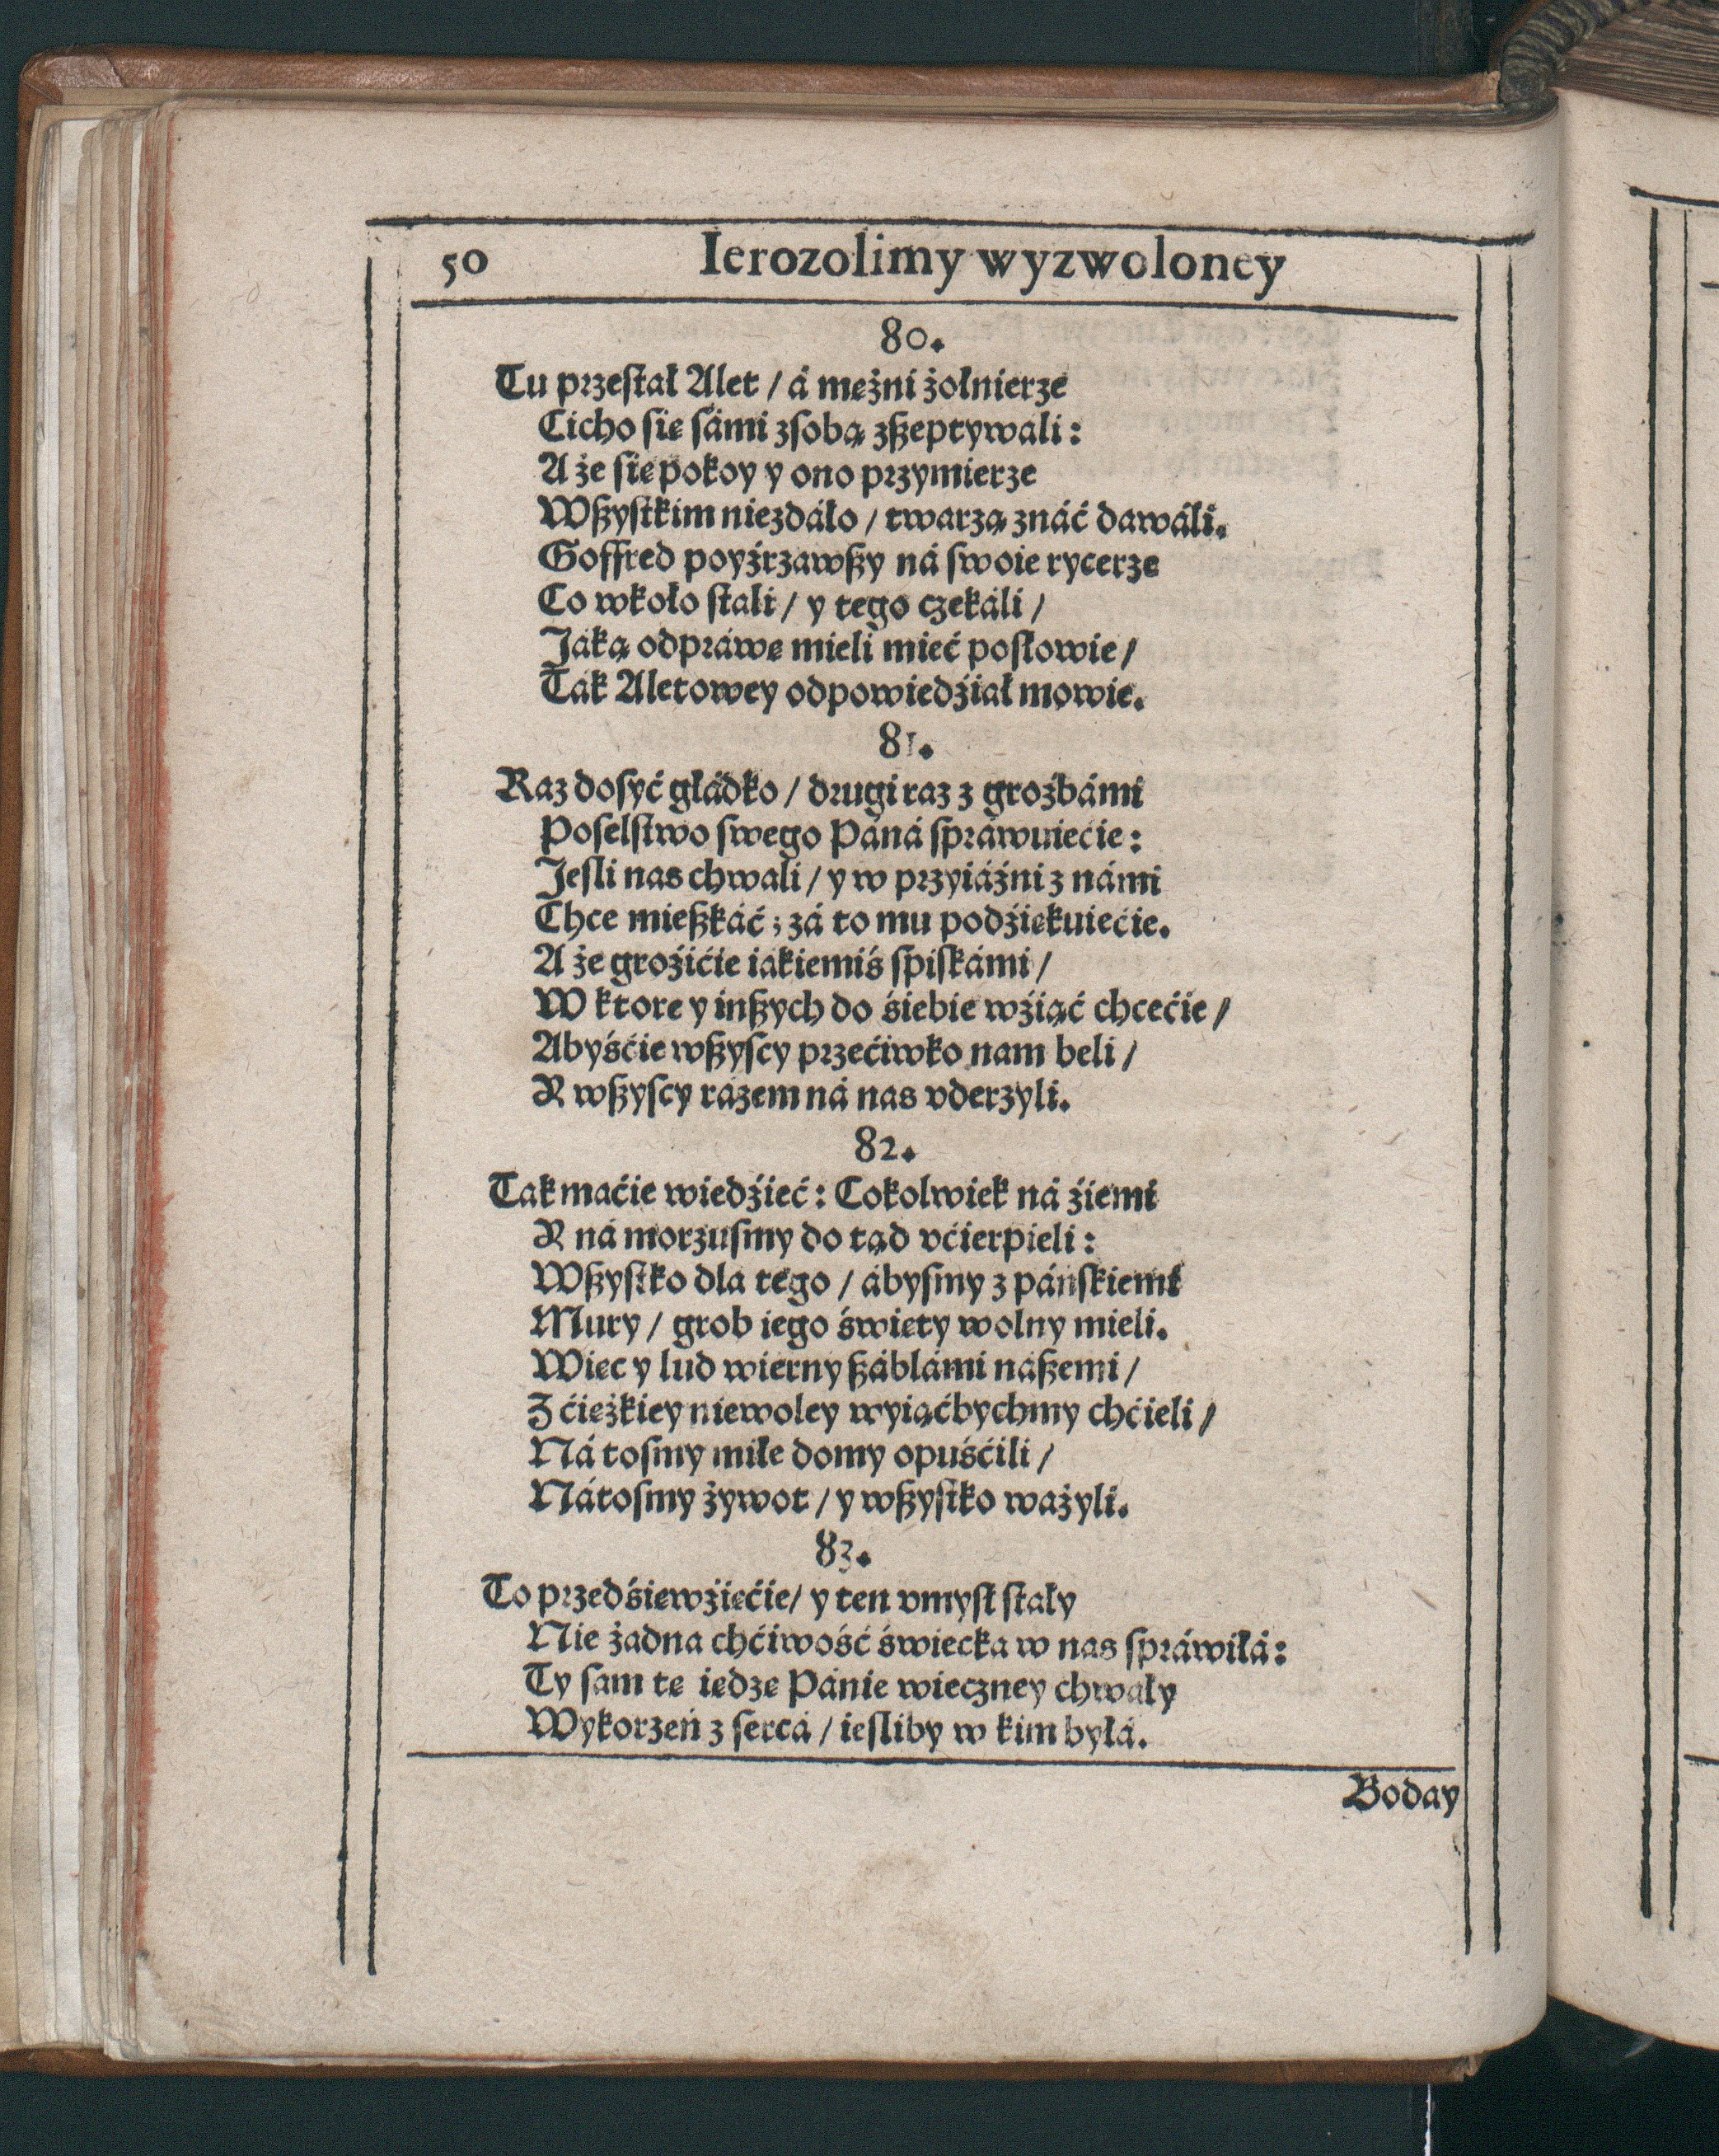 50 Ierozolimy wyzwoloney
80.
Tu przeſtał Alet / á mężni żołnierze
Cicho ſię ſámi zſobą zßeptywali:
A że ſię pokoy y ono przymierze
Wßyſtkim niezdáło / twarzą znáć dawáli.
Goffred poyźrzawßy ná ſwoie rycerze
Co wkoło ſtali / y tego czekáli /
Jáką odpráwę mieli mieć poſłowie /
Ták Aletowey odpowiedźiał mowie.
81.
Raz doſyć głádko / drugi raz z groźbámi
Poſelſtwo ſwego Páná ſpráwuiećie:
Jeſli nas chwali / y w przyiáźni z námi
Chce mießkáć; zá to mu podźiękuiećie.
A że groźićie iákiemiś ſpiſkámi /
W ktore y inßych do śiebie wźiąć chcećie /
Abyśćie wßyſcy przećiwko nam beli /
Y wßyſcy rázem ná nas vderzyli.
82.
Tak maćie wiedźieć: Cokolwiek ná źiemi
Y ná morzuſmy do tąd vćierpieli:
Wßyſtko dla tego / ábyſmy z páńſkiemi
Mury / grob iego święty wolny mieli.
Więc y lud wierny ßáblámi náßemi /
Z ćiężkiey niewoley wyiąćbychmy chćieli /
Ná toſmy miłe domy opuśćili /
Nátoſmy żywot / y wßyſtko ważyli.
83.
To przedśięwźięćie / y ten vmyſł ſtały
Nie żadna chćiwość świecka w nas ſpráwiłá:
Ty ſam tę iędzę Pánie wieczney chwały
Wykorzeń z ſercá / ieſliby w kim byłá.
Boday